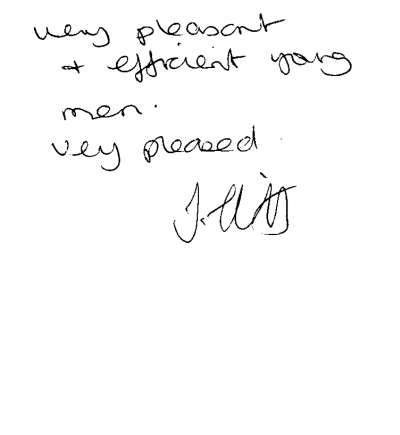 very pleasant
+ efficient young
men.
very pleased